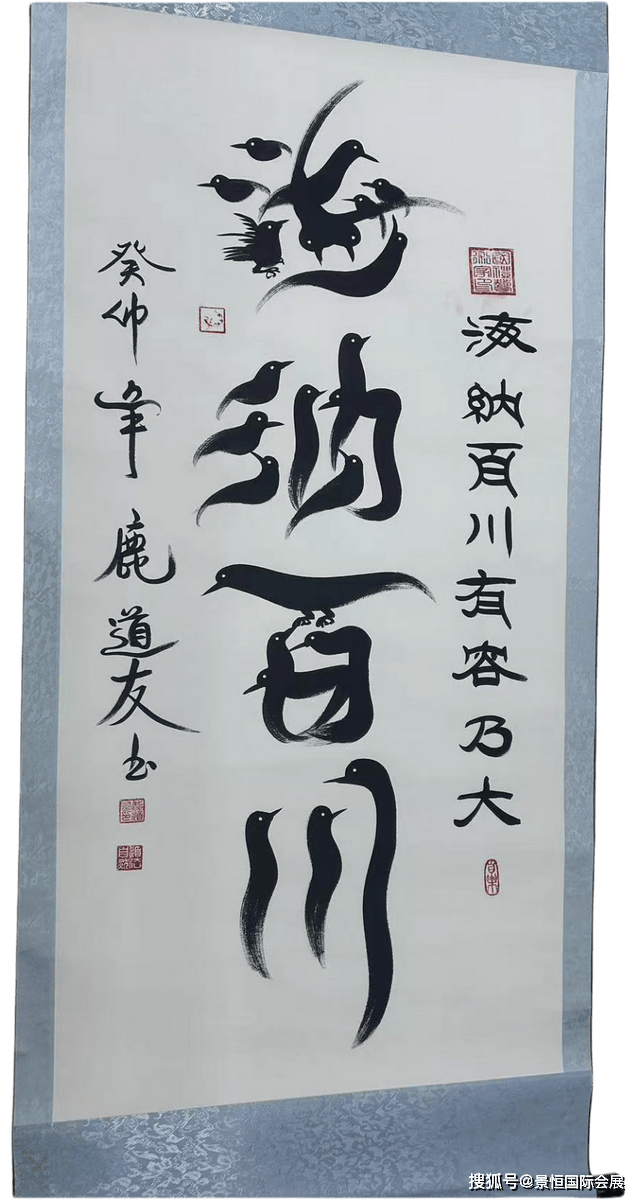 海納百川有容乃大
海纳百川
癸卯年鹿道友书
搜狐号@景恒国际会展